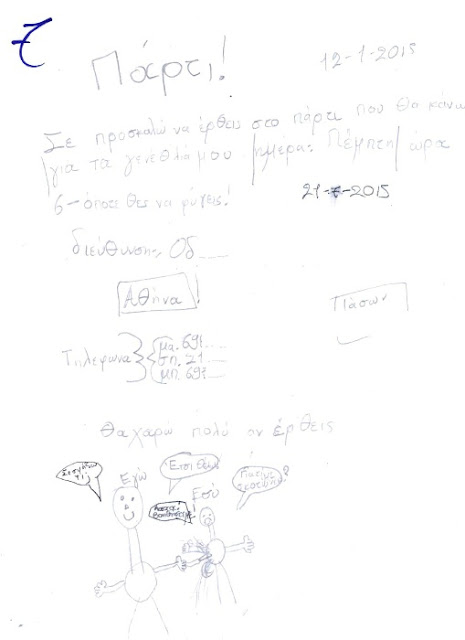 7
Πάρτι!
12-1-2015
Σε προσκαλώ να έρθεις στο πάρτι που θα κάνω
για τα γενέθλιά μου ημέρα: Πέμπτη ώρα
6-όποτε θες να φύγεις!
21-7-2015
διεύθυνση, Οδ
Αθήνα!
Τηλέφωνα
μα. 69
σπ. 21
μπ. 69
Θα χαρω πολύ αν έρθεις
Εγώ
Έτσι
Εσύ